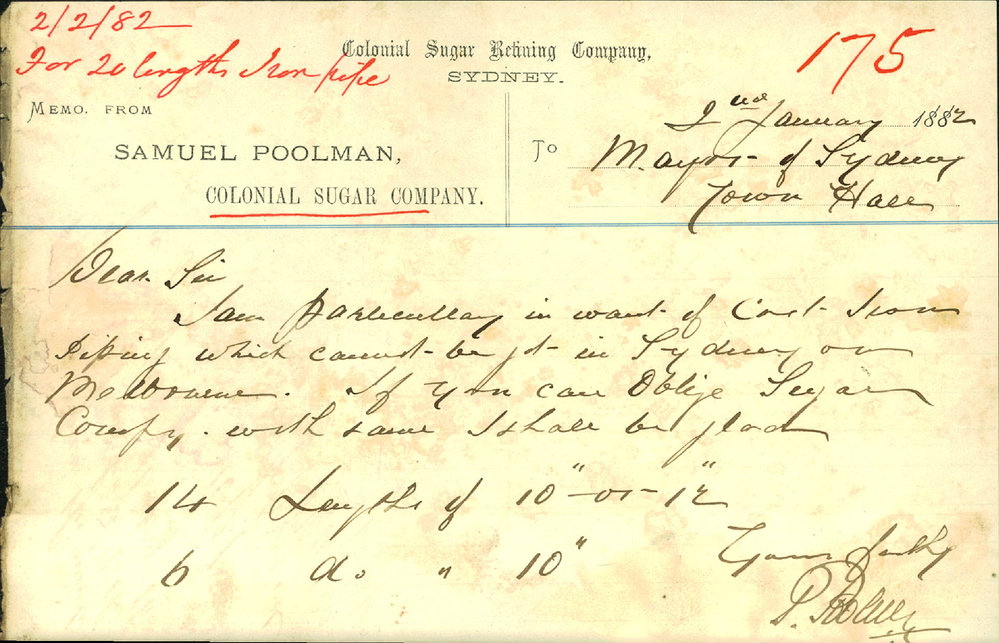 2/2/82
For 20 lengths Iron pipe
175
Colonial Sugar Refining Company,
SYDNEY.
MEMO. FROM
SAMUEL POOLMAN,
COLONIAL SUGAR COMPANY.
2nd January 1882
To Mayor of Sydney
Town Hall
Dear Sir
I am particullay in want of Cast Iron
Piping which cannot be got in Sydney or
Melbourne. If you can Oblige Sugar
Compy. with same I shall be glad
14 Lengths of 10" or 12"
6 do. " 10"
Yours faithy
S. Poolman